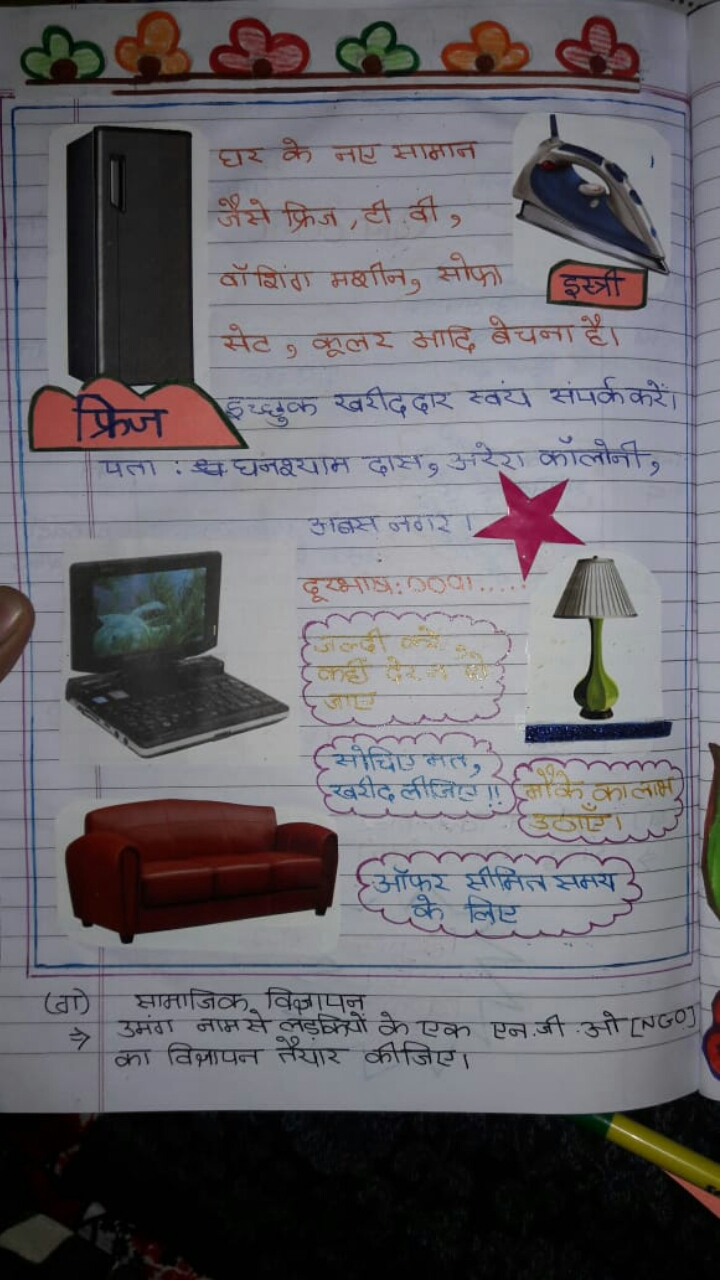 घर के नए सामान
जैसे फ्रिज, टी.वी,
वॉशिंग मशीन, सोफा
इस्त्री
सेट, कूलर आदि बेचना है।
फ्रिज
इच्छुक खरीददार स्वयं संपर्क करें।
पता : घनश्याम दास, अरेरा कॉलोनी,
अबस नगर।
दूरभाष: 0091.....
जल्दी करें,
कहीं देर न हो
जाए
सोचिए मत,
खरीद लीजिए!!
मौके का लाभ
उठाएँ।
ऑफर सीमित समय
के लिए
(ग) सामाजिक विज्ञापन
⇒ उमंग नाम से लड़कियों के एक एन.जी.ओ [NGO]
का विज्ञापन तैयार कीजिए।